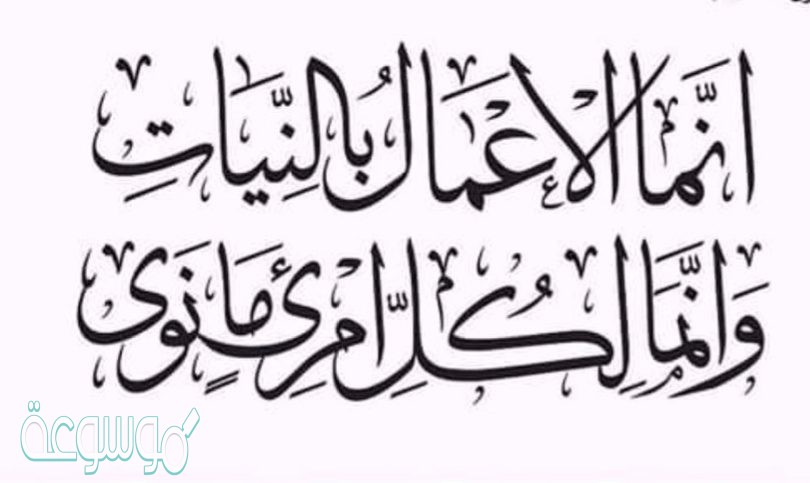 انَّمَا الاعْمَالُ بالنِّيَّاتِ
وَانَّمَا لِكُلِّ امْرِئٍ مَا نَوَى
موسوعة